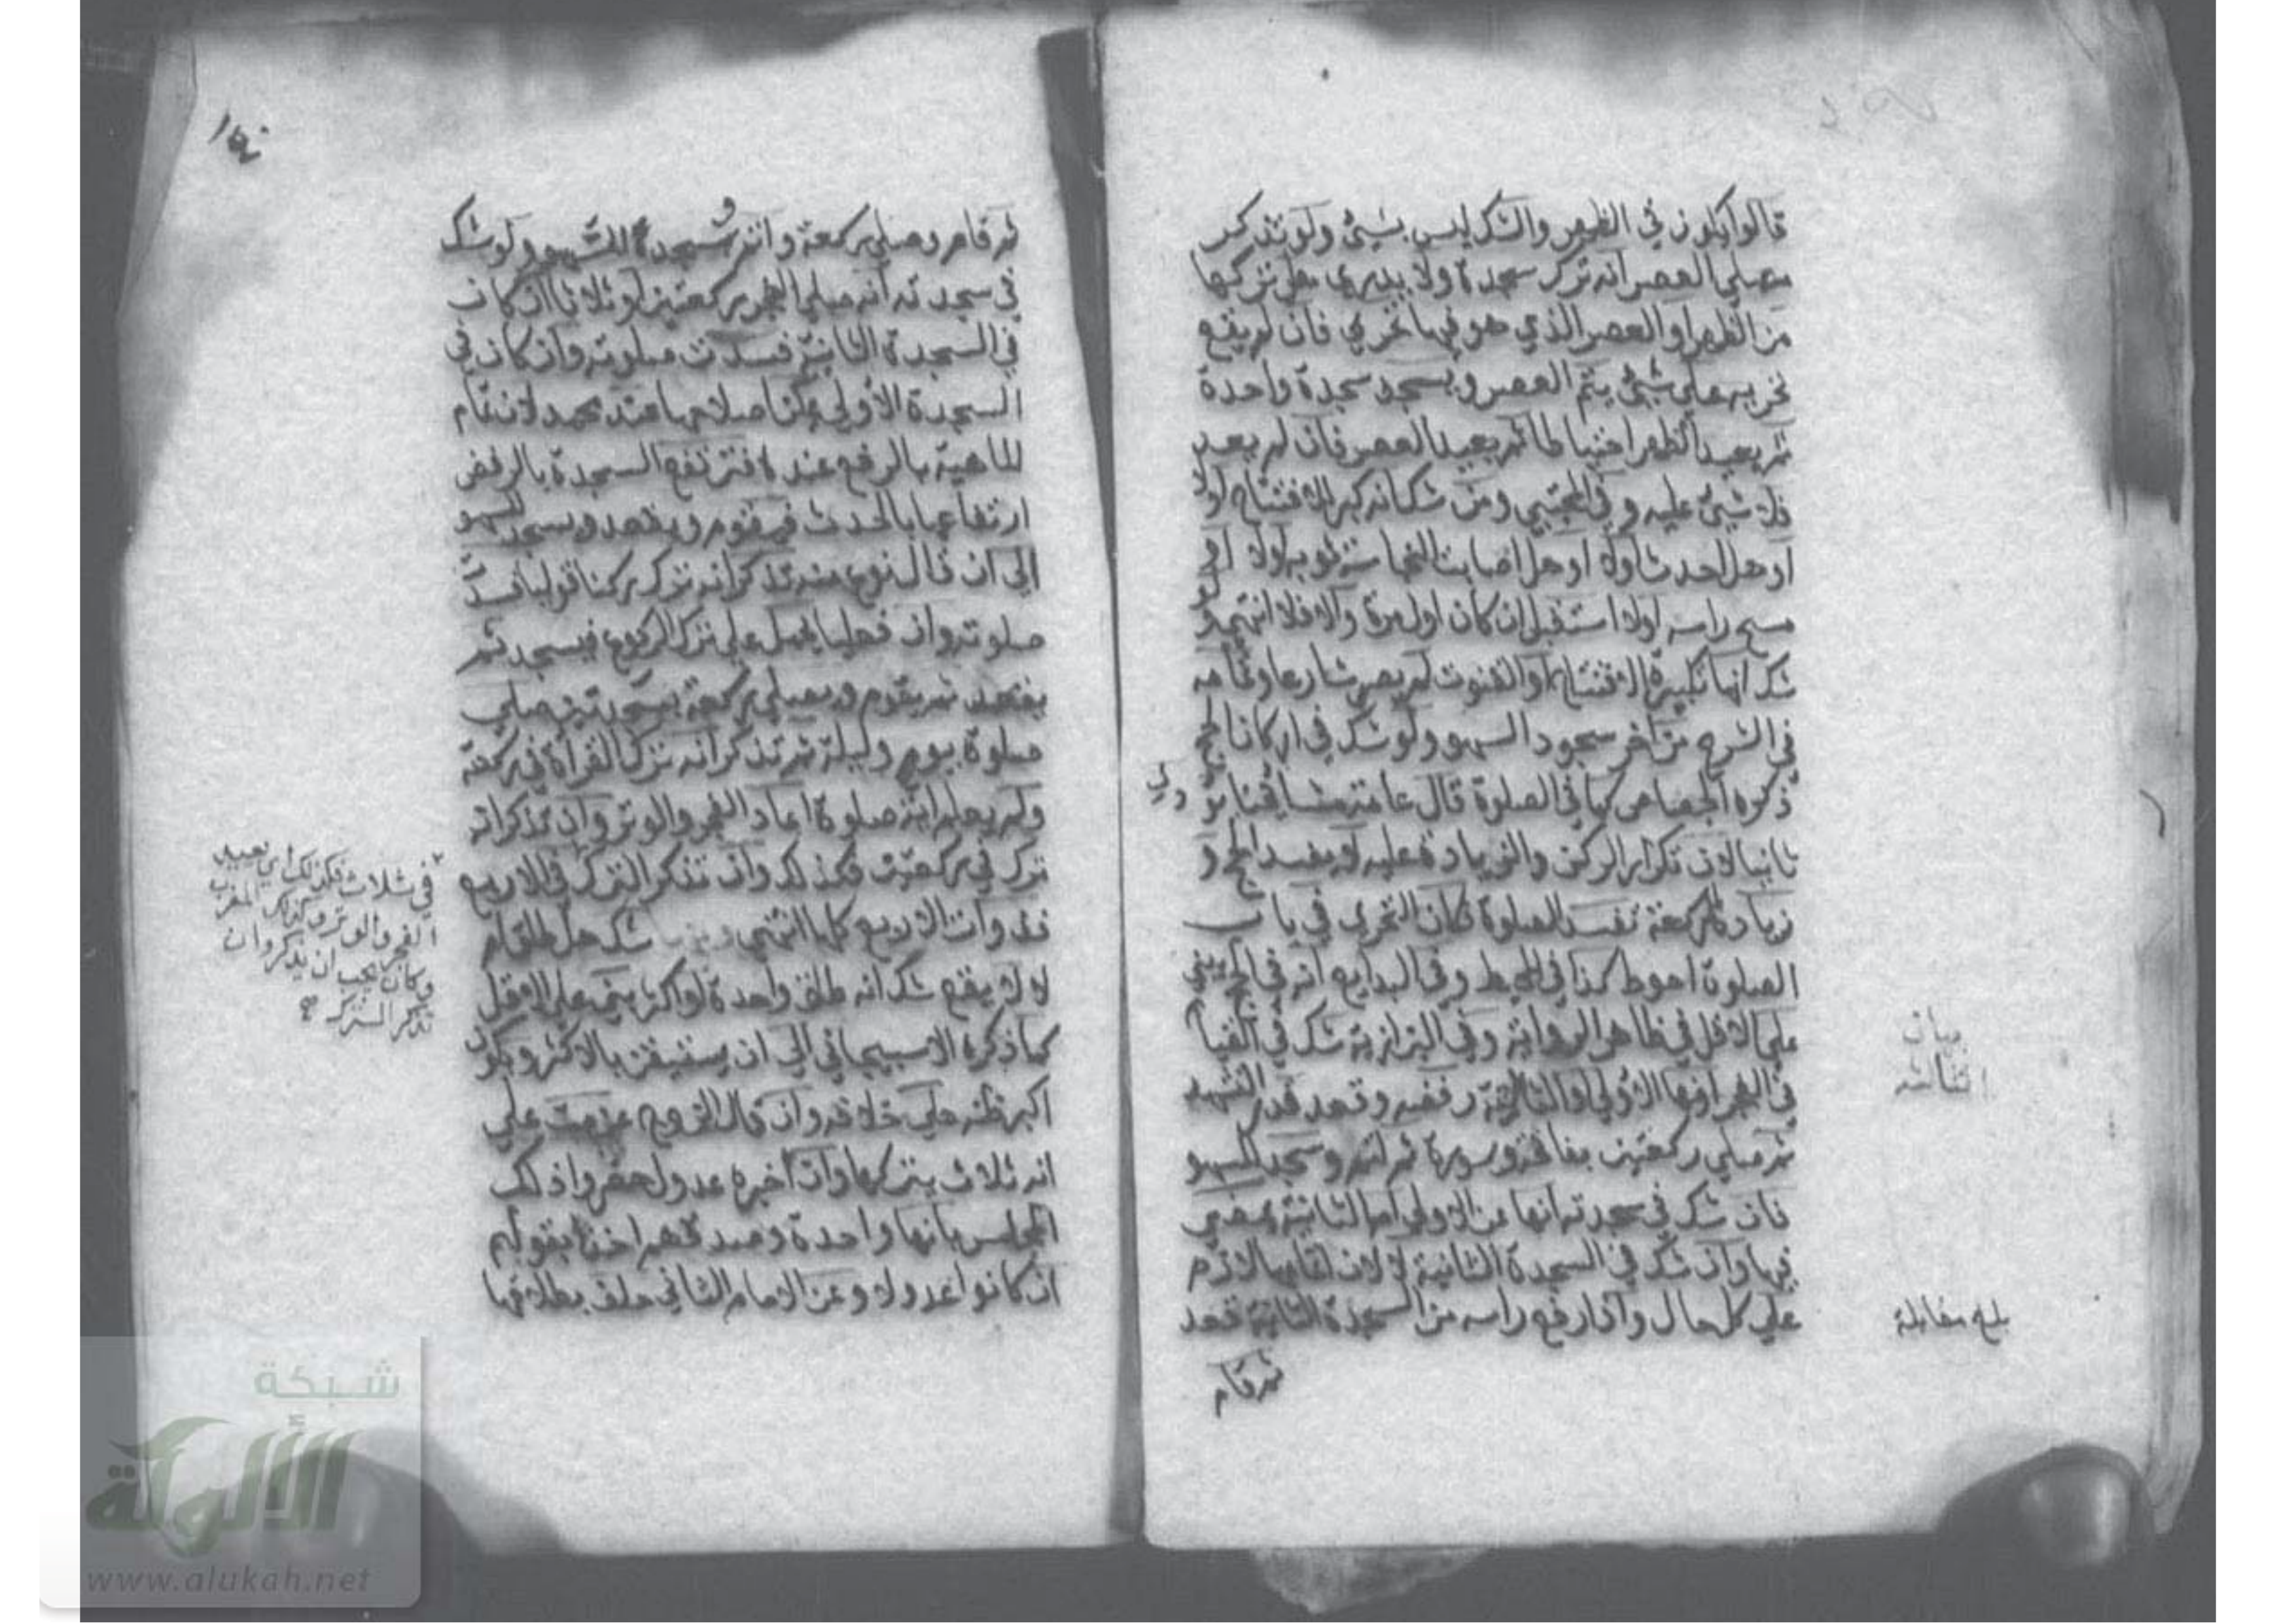 قالوا يكون في الظهر والشك ليس بشيئ ولو تذكر
مصلي العصر انه ترك سجدة ولا يدري هل تركها
من الظهر او العصر الذي هو فيها تحري فان لم يقع
تحريه علي شيئ يتم العصر ويسجد سجدة واحدة
ثم يعيد الظهر احتياطا ثم يعيد العصر فان لم يعد
فلا شيئ عليه وفي المجتبي ومن شك انه كبر للافتتاح اولا
او هل احدث اولا او هل اصابت النجاسة ثوبه اولا او
مسح راسه اولا استقبل ان كان اول مرة والا فلا انتهي ولو
شك انها تكبيرة الافتتاح او القنوت لم يصر شارعا وتمامه
في الشرح من آخر سجود السهو ولو شك في اركان الحج
ذكره الجصاص كما في الصلوة قال عامة مشايخنا يؤدي
ثانيا لان تكرار الركن والزيادة عليه لا يفسد الحج و
زيادة الركعة تفسد الصلوة فكان التحري في باب
الصلوة احوط كذا في المحيط وفي البدايع انه في الحج يبني
علي الاقل في ظاهر الرواية وفي البزازية شك في القيام
في الفجر انها الاولي او الثالثة رفضه وقعد قدر التشهد
ثم صلي ركعتين بفاتحة وسورة ثم اتم وسجد للسهو
فان شك في سجدته انها عن الاولي ام الثانية يمضي
فيها وان شك في السجدة الثانية لان اتمامها لازم
علي كل حال واذا رفع راسه من السجدة الثانية قعد
ثم قام
بيان
بلغ مقابلة
ثم قام وصلي ركعة واتم وسجد للسهو ولو شك
في سجدته انه صلي الفجر ركعتين او ثلاثا ان كان
في السجدة الثانية فسدت صلوته وان كان في
السجدة الاولي يمكن اصلاحها عند محمد لان تمام
الماهية بالرفع عنده فترتفع السجدة بالرفض
ارتفاعها بالحدث فيقوم ويقعد ويسجد للسهو
الي ان قال نوع منه تذكر انه ترك ركنا قوليا فسدت
صلوته وان فعليا يحمل علي ترك الركوع فيسجد ثم
يقعد ثم يقوم ويصلي ركعة بسجدتين صلي
صلوة يوم وليلة ثم تذكر انه ترك القراة في ركعة
ولم يعلم اية صلوة اعاد الفجر والوتر وان تذكر انه
ترك في ركعتين فكذلك وان تذكر الترك في الاربع
فذوات الاربع كلها انتهي شك هل طلق ام
لا لم يقع شك انه طلق واحدة او اكثر بني علي الاقل
كما ذكره الاسبيجابي الي ان يستيقن بالاكثر ويكون
اكبر ظنه علي خلافه وان قال الزوج عزمت علي
انه ثلاث يتركها وان اخبره عدول حضروا ذلك
المجلس بانها واحدة وصدقهم اخذ بقولهم
ان كانوا عدولا وعن الامام الثاني حلف بطلاقها
في ثلاث فكذلك اي يعيد
الفجر والوتر وكذلك المغرب
وكان يجب ان يذكر وان
تذكر الترك
شبكة
الألوكة
www.alukah.net